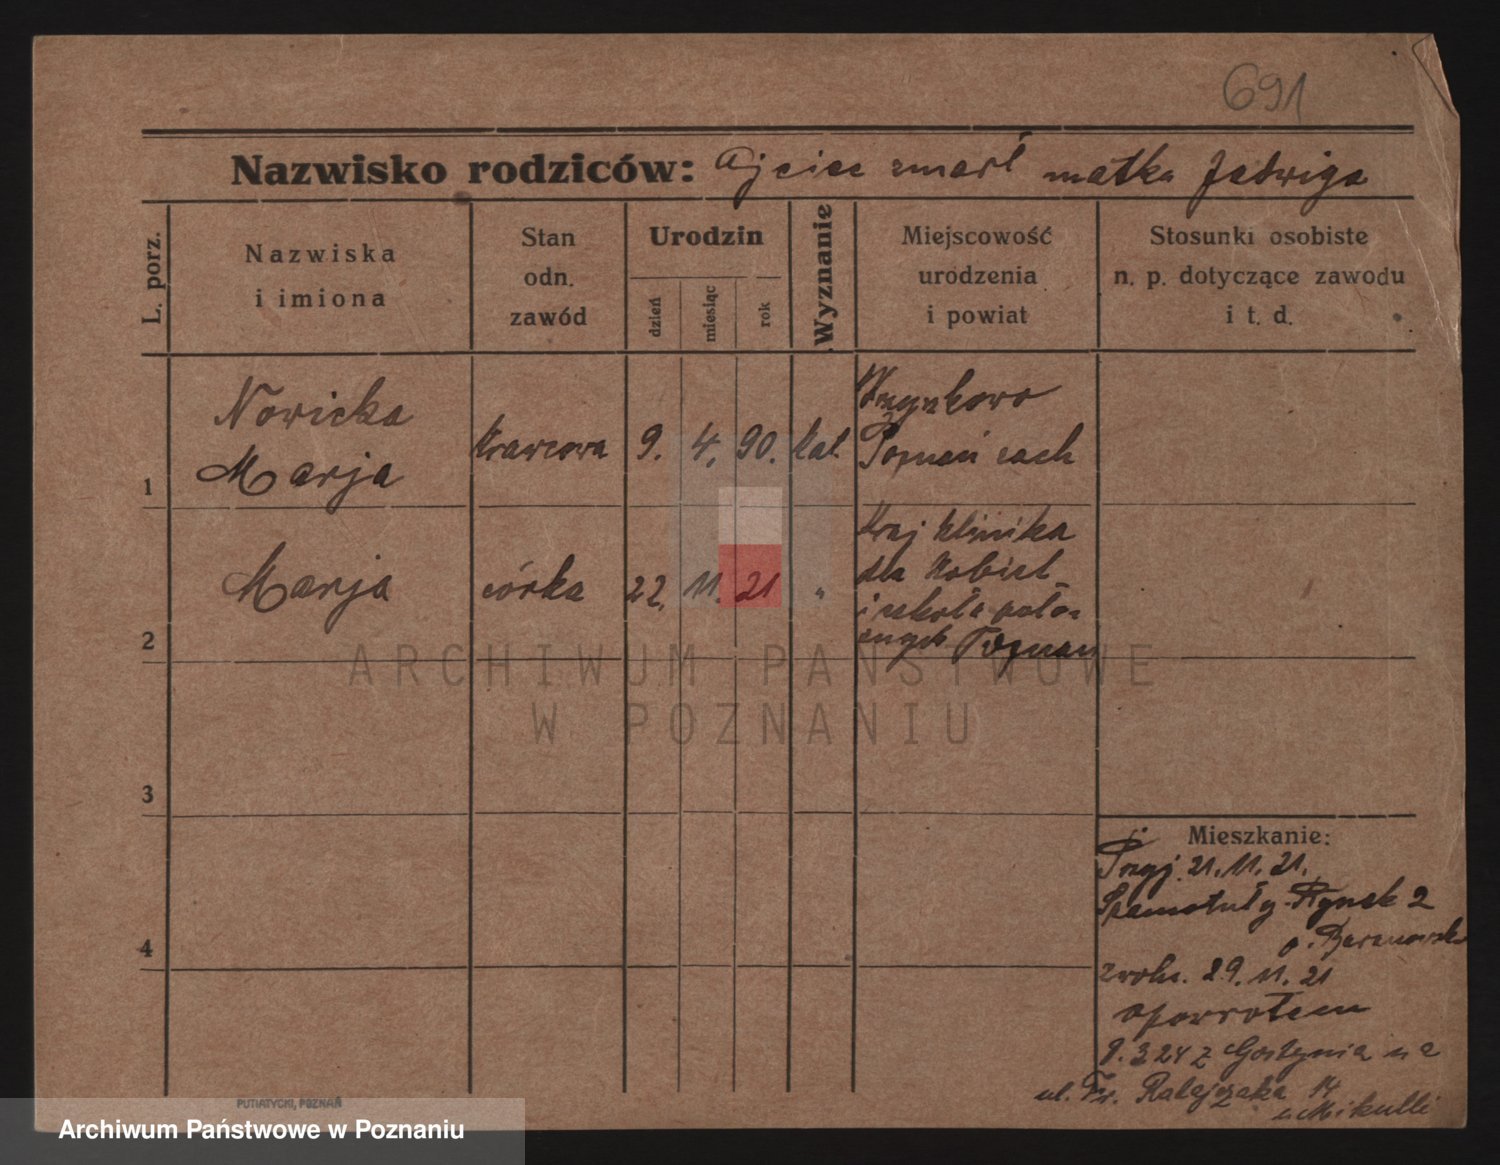 691
Nazwisko rodziców: Ojciec zmarł matka Jadwiga
L. porz.
Nazwiska
i imiona
Stan
odn.
zawód
Urodzin
dzień
miesiąc
rok
Wyznanie
Miejscowość
urodzenia
i powiat
Stosunki osobiste
n. p. dotyczące zawodu
i t. d.
1
Nowicka
Marja
Krawcowa
9. 4. 90.
Kat.
Poznań zach
2
Marja
córka
22. 11. 21
"
Kraj klinika
dla Kobiet
i szkoła poło-
żnych Poznań
3
4
Mieszkanie:
Przyj. 21. 11. 21.
Szamotuły Rynek 2
p. Baranowska
29. 11. 21
z powrotem
9. 3 24 z Gostynia na
ul. Fr. Ratajczaka 14
u Mikulli
PUTIATYCKI, POZNAŃ
ARCHIWUM PAŃSTWOWE
W POZNANIU
Archiwum Państwowe w Poznaniu